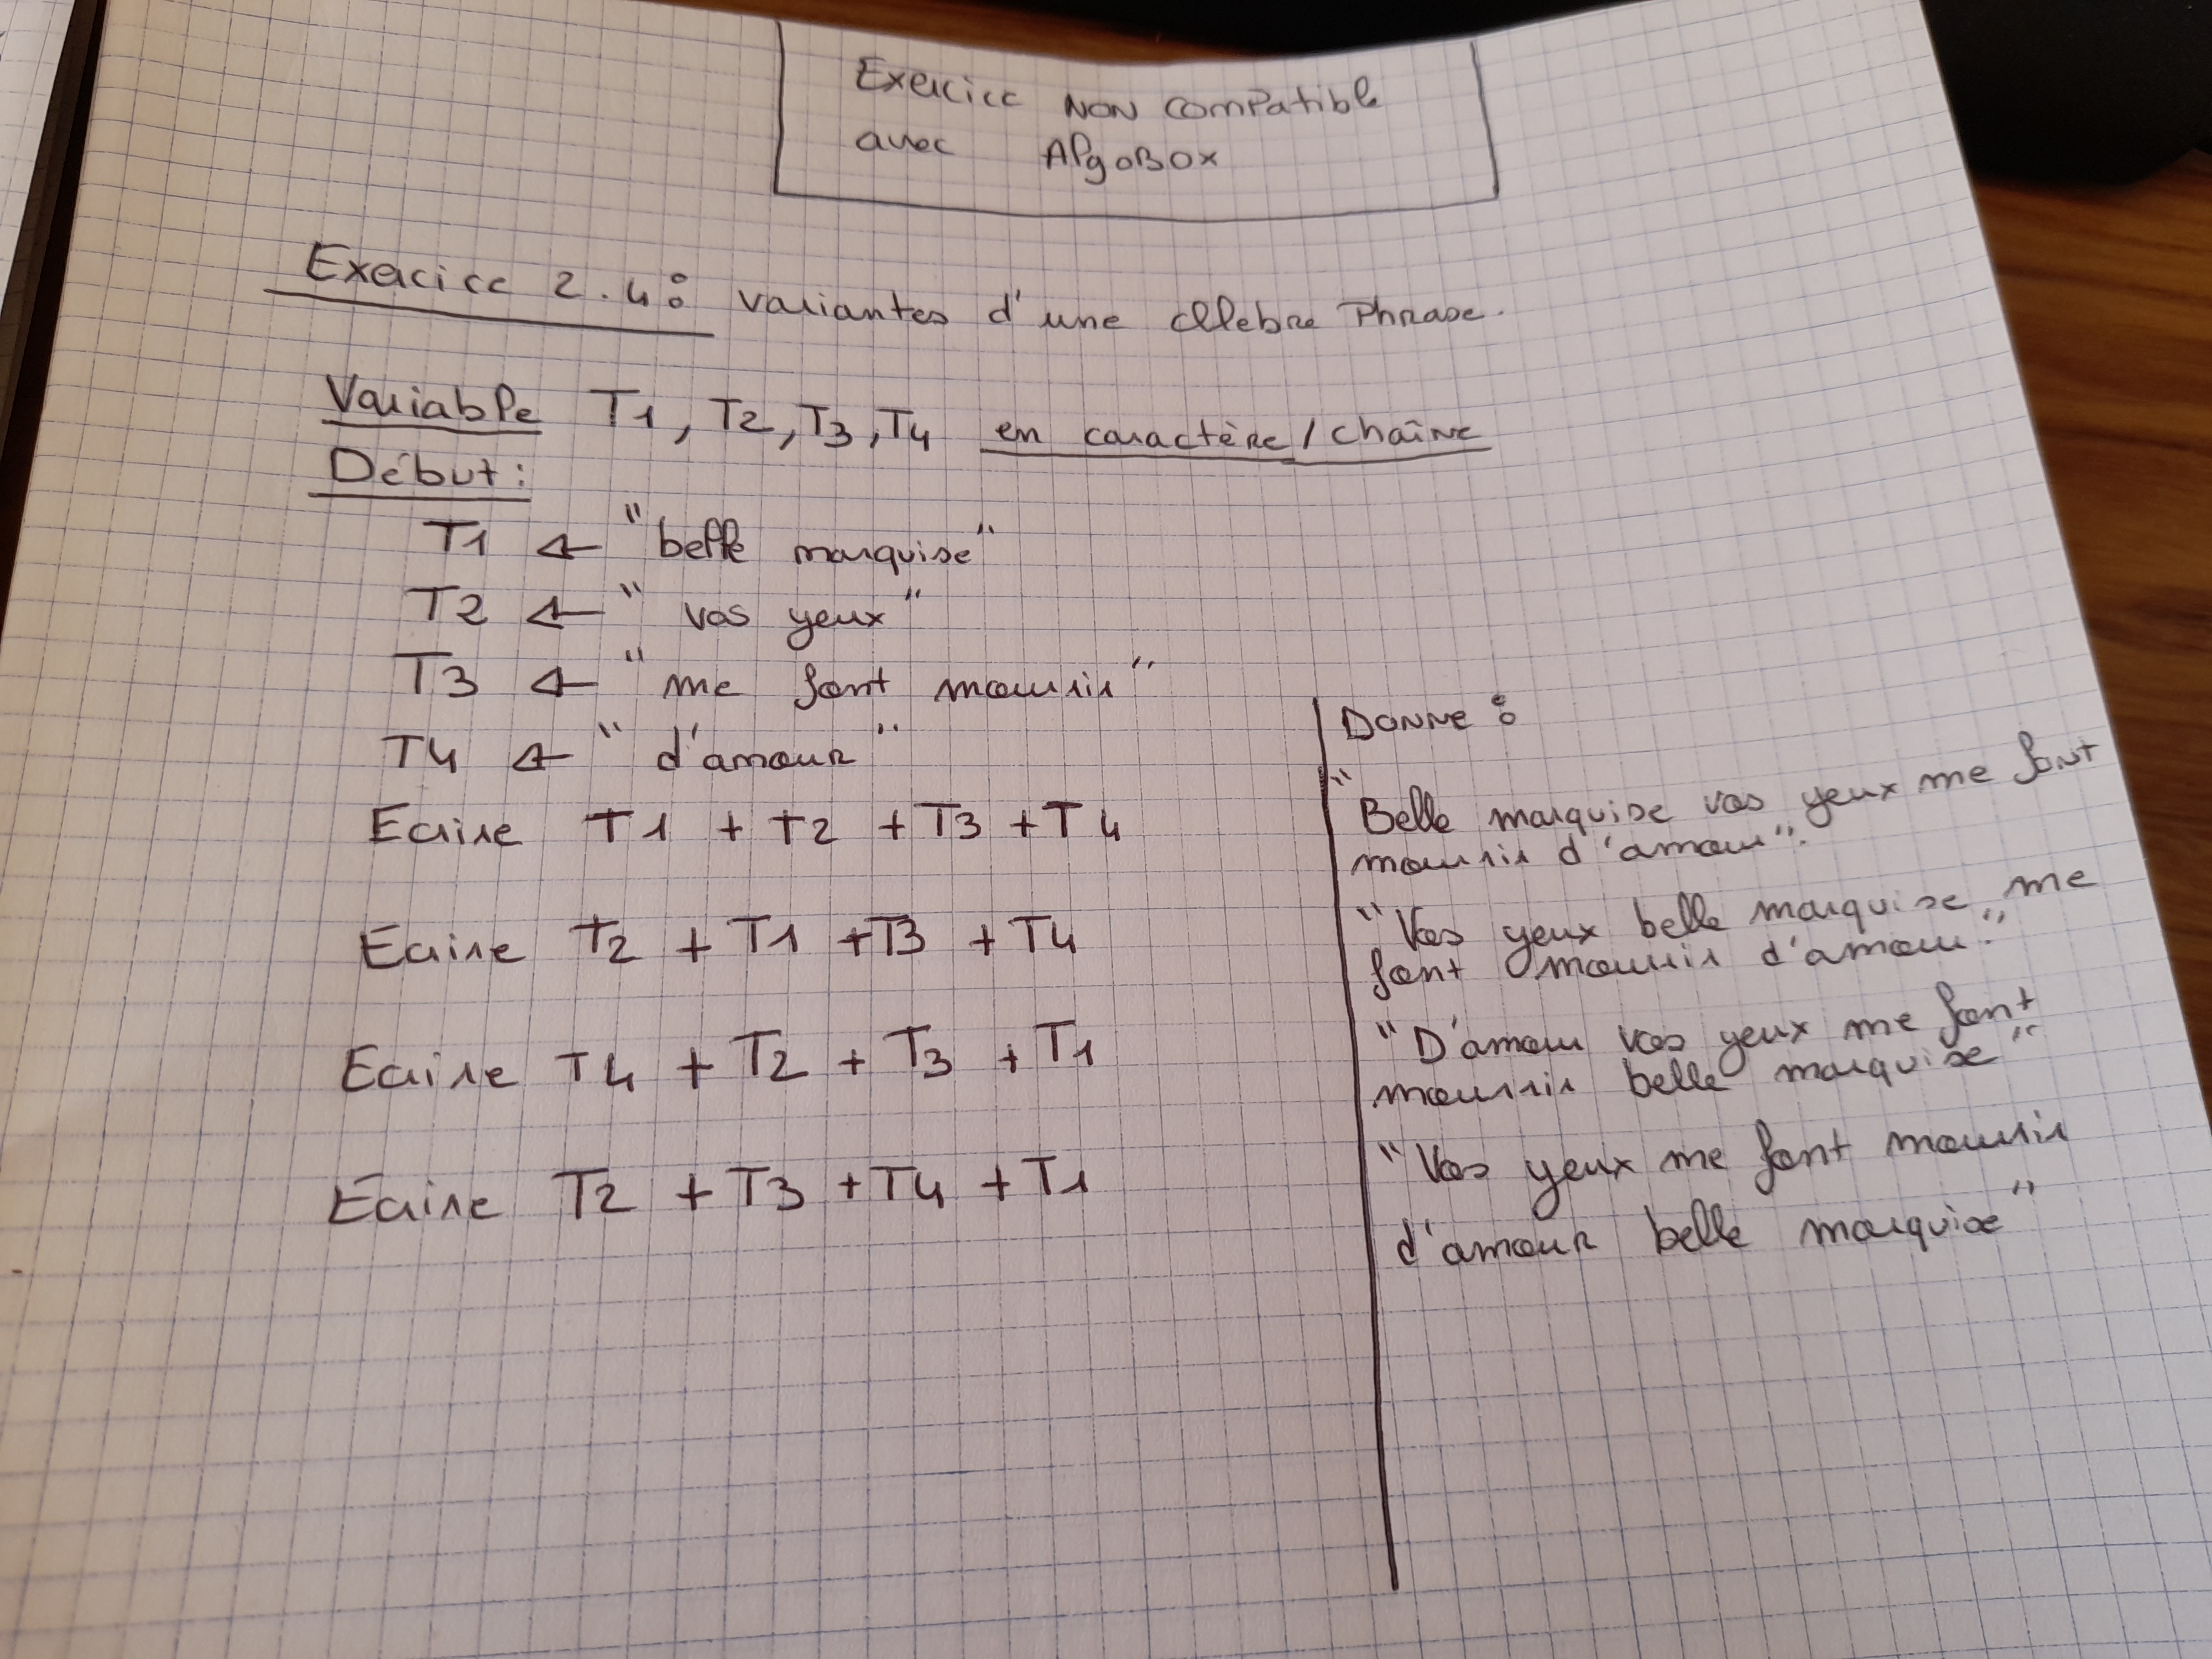 Exercice NON compatible
avec AlgoBOX
Exercice 2.4: variantes d'une célèbre Phrase.
Variable T1, T2, T3, T4 en caractère / chaîne
Début :
T1 ← "belle marquise"
T2 ← "vos yeux"
T3 ← "me font mourir"
T4 ← "d'amour"
Ecrire T1 + T2 + T3 + T4
Ecrire T2 + T1 + T3 + T4
Ecrire T4 + T2 + T3 + T1
Ecrire T2 + T3 + T4 + T1
DONNE :
"Belle marquise vos yeux me font
mourir d'amour".
"Vos yeux belle marquise me
font mourir d'amour."
"D'amour vos yeux me font
mourir belle marquise"
"Vos yeux me font mourir
d'amour belle marquise"